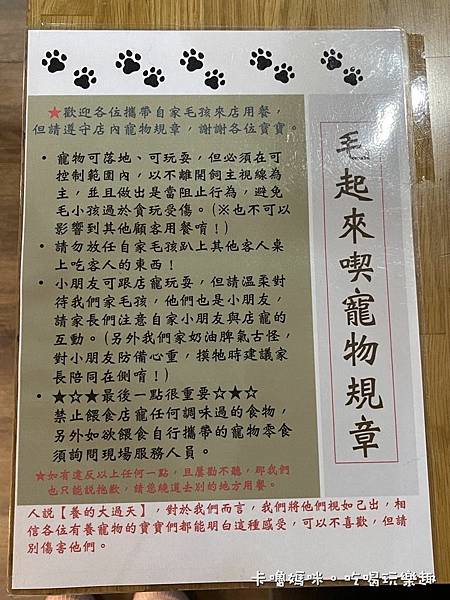 毛起來喫寵物規章
★歡迎各位攜帶自家毛孩來店用餐,
但請遵守店內寵物規章,謝謝各位寶寶。
• 寵物可落地、可玩耍,但必須在可
控制範圍內,以不離開飼主視線為
主,並且做出是當阻止行為,避免
毛小孩過於貪玩受傷。(※也不可以
影響到其他顧客用餐唷!)
• 請勿放任自家毛孩趴上其他客人桌
上吃客人的東西!
• 小朋友可跟店寵玩耍,但請溫柔對
待我們家毛孩,他們也是小朋友,
請家長們注意自家小朋友與店寵的
互動。(另外我們家奶油脾氣古怪,
對小朋友防備心重,摸牠時建議家
長陪同在側唷!)
• ★☆★最後一點很重要☆★☆
禁止餵食店寵任何調味過的食物,
另外如欲餵食自行攜帶的寵物零食
須詢問現場服務人員。
★如有違反以上任何一點,且屢勸不聽,那我們
也只能說抱歉,請您繞道去別的地方用餐。
人說【養的大過天】,對於我們而言,我們將他們視如己出,相
信各位有養寵物的寶寶們都能明白這種感受,可以不喜歡,但請
別傷害他們。
卡嚕媽咪。吃喝玩樂趣